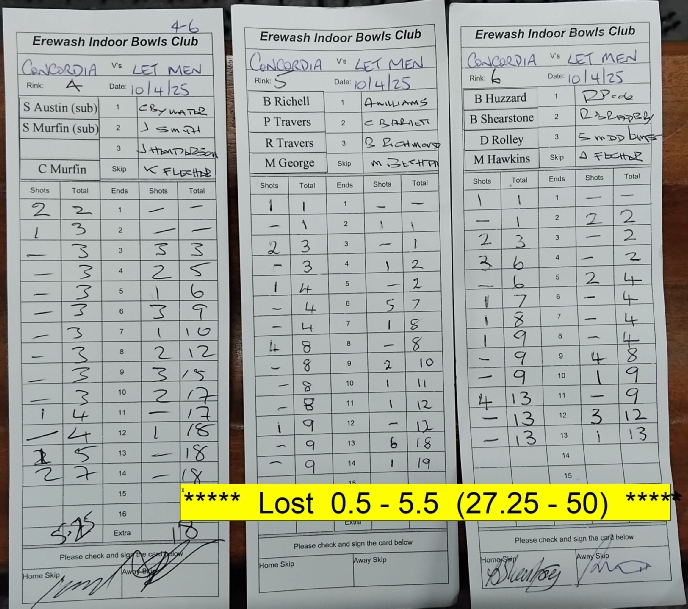 4-6
Erewash Indoor Bowls Club
CONCORDIA Vs LET MEN
Rink: 4 Date: 10/4/25
S Austin (sub) 1 C BYWATER
S Murfin (sub) 2 J SMITH
3 J HENDERSON
C Murfin Skip K FLETCHER
Shots Total Ends Shots Total
2 2 1 — —
1 3 2 — —
— 3 3 3 3
— 3 4 2 5
— 3 5 1 6
— 3 6 3 9
— 3 7 1 10
— 3 8 2 12
— 3 9 3 15
— 3 10 2 17
1 4 11 — 17
— 4 12 1 18
1 5 13 — 18
2 7 14 — 18
15
16
5.25 Extra 18
Please check and sign the card below
Home Skip Away Skip
Erewash Indoor Bowls Club
CONCORDIA Vs LET MEN
Rink: 5 Date: 10/4/25
B Richell 1 A WILLIAMS
P Travers 2 C BARNETT
R Travers 3 B RICHMOND
M George Skip M
Shots Total Ends Shots Total
1 1 1 — —
— 1 2 1 1
2 3 3 — 1
— 3 4 1 2
1 4 5 — 2
— 4 6 5 7
— 4 7 1 8
4 8 8 — 8
— 8 9 2 10
— 8 10 1 11
— 8 11 1 12
1 9 12 — 12
— 9 13 6 18
— 9 14 1 19
Extra
Please check and sign the card below
Home Skip Away Skip
Erewash Indoor Bowls Club
CONCORDIA Vs LET MEN
Rink: 6 Date: 10/4/25
B Huzzard 1 R
B Shearstone 2 R BRADBERY
D Rolley 3 S
M Hawkins Skip A FLETCHER
Shots Total Ends Shots Total
1 1 1 — —
— 1 2 2 2
2 3 3 — 2
3 6 4 — 2
— 6 5 2 4
1 7 6 — 4
1 8 7 — 4
1 9 8 — 4
— 9 9 4 8
— 9 10 1 9
4 13 11 — 9
— 13 12 3 12
— 13 13 1 13
14
15
Please check and sign the card below
Home Skip Away Skip
***** Lost 0.5 - 5.5 (27.25 - 50) *****